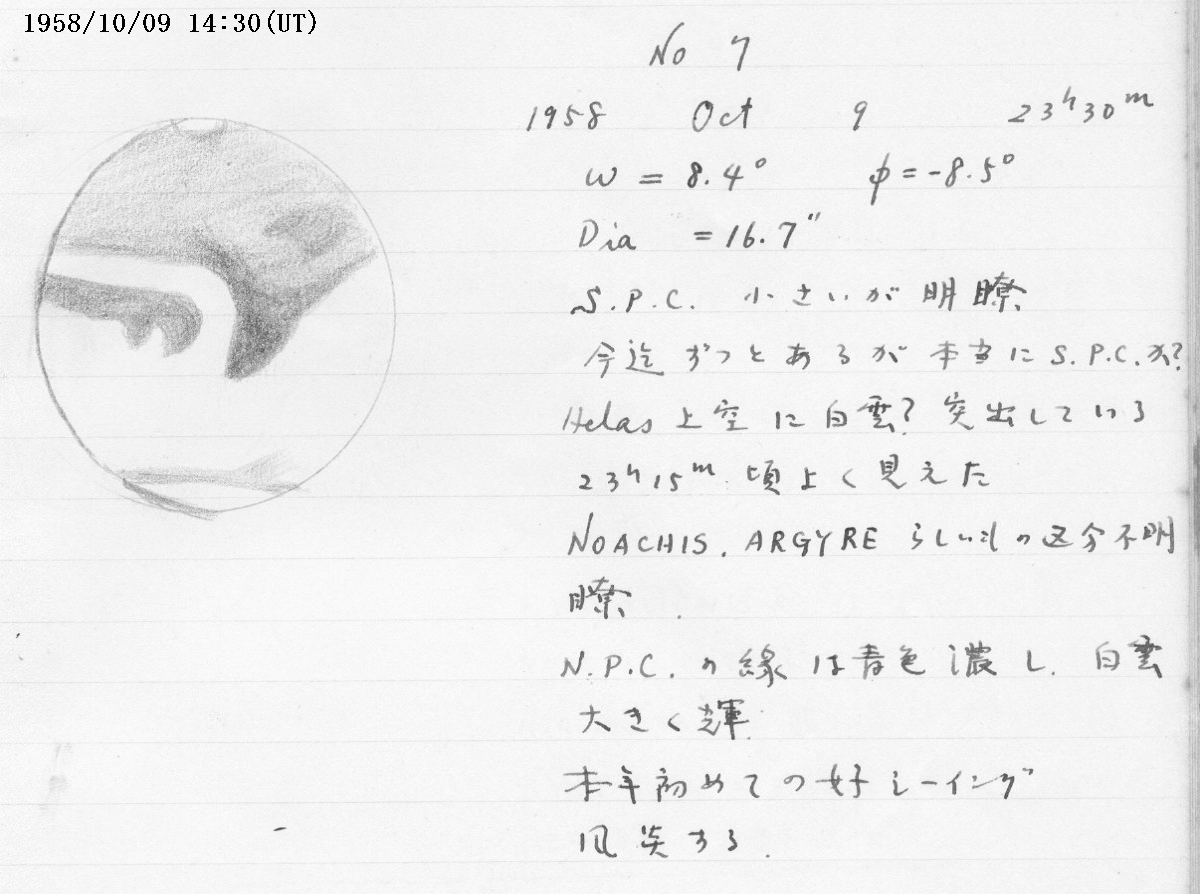 1958/10/09 14:30(UT)
No 7
1958 Oct 9 23h30m
ω = 8.4° φ = -8.5°
Dia = 16.7"
S.P.C. 小さいが明瞭
今迄ずっとあるが本当にS.P.C.か?
Helas上空に白雲? 突出している
23h15m頃よく見えた
NOACHIS, ARGYREらしいもの区分不明
瞭.
N.P.C.の縁は青色濃し. 白雲
大きく輝
本年初めての好シーイング
風
する.